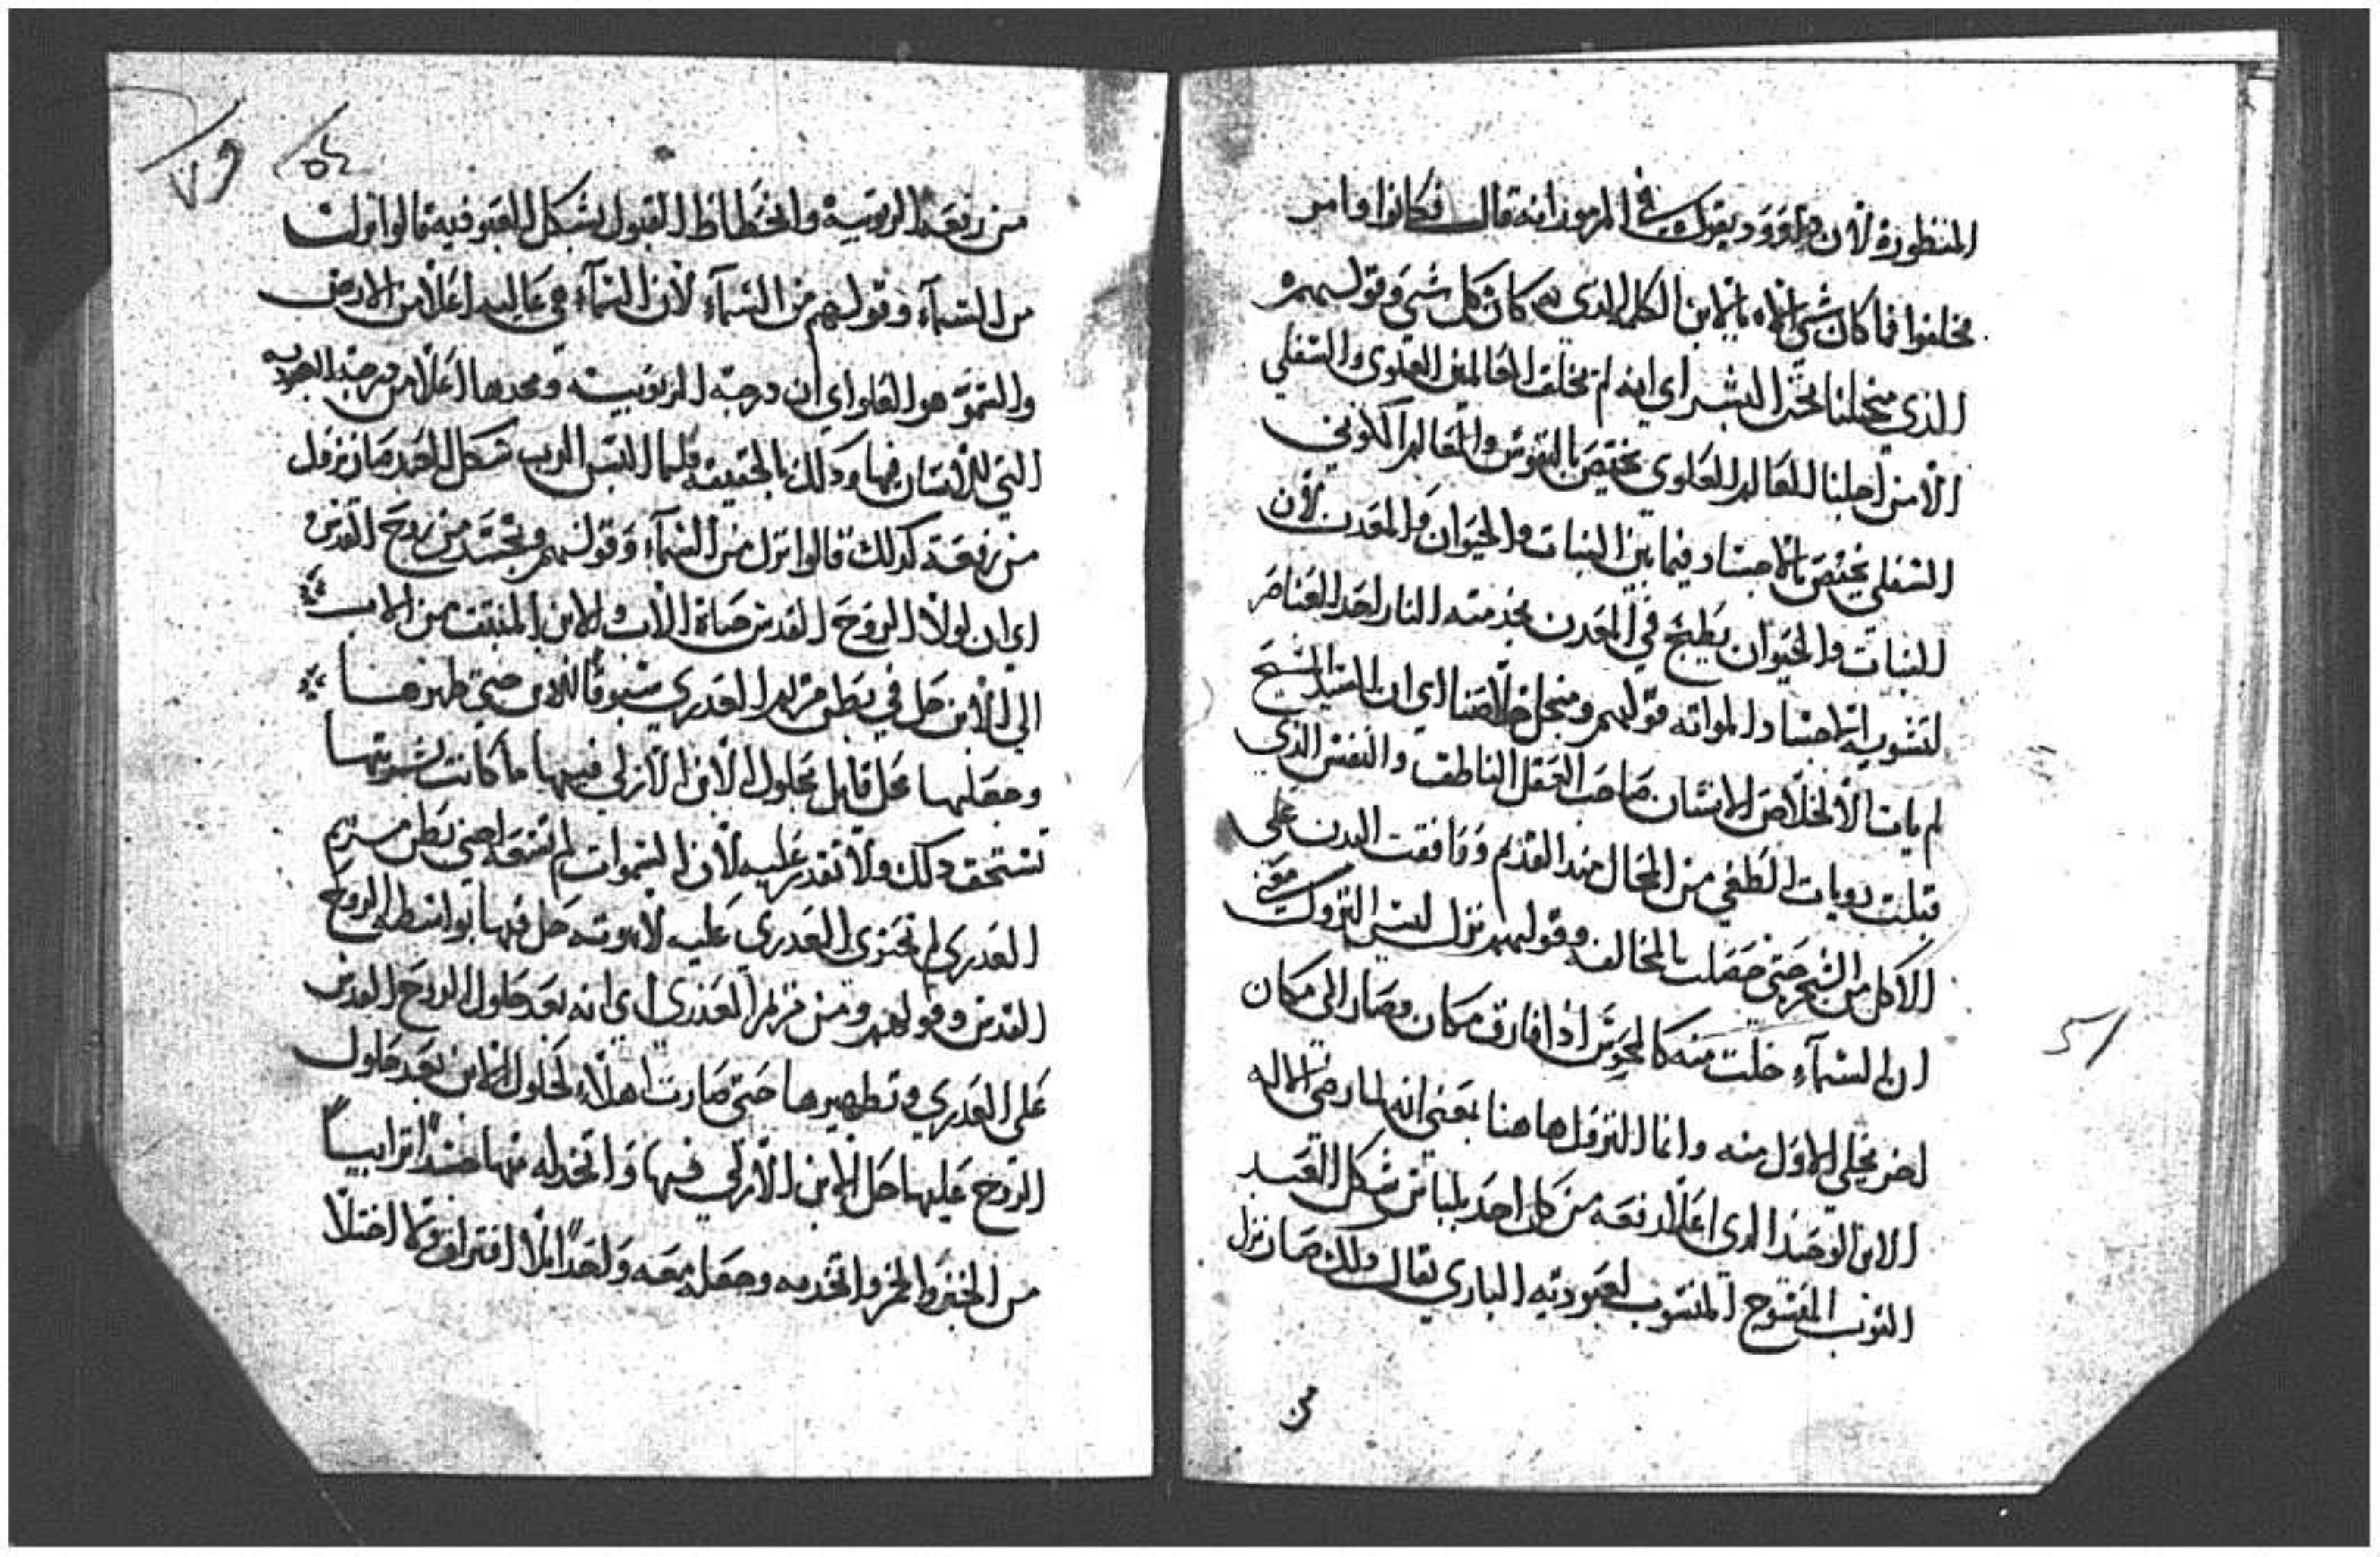 المنظورة لأن داوود يقول في المزمور انه قال فكانوا وامر
فخلقوا فما كان شي الاه بالابن الكلمه الدي به كان كل شي وقولهم
الذي من اجلنا نحن البشر اي انه لم يخلق العالمين العلوي والسفلي
الا من اجلنا العالم العلوي يختص بالنفوس والعالم الكوني
السفلي يختص بالاجساد فيما بين النبات والحيوان والمعدن لأن
النبات والحيوان يطبخ في المعدن بخدمته النار احد العناصر
لتشويه الاجساد المواته قولهم ومن اجل خلاصنا اي ان السيد المسيح
لم يات الا لخلاص الانسان صاحب العقل الناطق والنفس الذي
قبلت من المحال منذ القدم ووافقت البدن على
الاكل من الشجرة حتى حصلت بالمخالفه وقولهم نزل ليس النزول
ان السماء خلت منه كالمحوس اذا فارق مكان وصار الى مكان
اخر يخلي الاول منه وانما النزول هاهنا بمعني انه لما رضي الاله
الابن الوحيد الدي اعلا رفعه من كل احد بلباس شكل العبد
الثوب المنسوب لعبوديه الباري تعالى ولك صار نزل
من
51
٥٢
٧٩
من رفعة الربوبية وانحطاط القبول لشكل العبوديه قالوا نزل
من السماء وقولهم من السماء لأن السماء هي عاليه اعلا من الارض
والسمو هو العلو اي ان درجة الربوبيته ومجدها اعلا من درجة العبوديه
التي للانسان فيها وذلك بالحقيقه فلما لبس الرب شكل العبد صار نزل
من رفعة كدلك قالوا نزل من السماء وقولهم وتجسد من روح القدس
اي ان لولا الروح القدس حياة الاب والابن المنبتق من الاب
الي الابن حل في بطن مريم العدري سبوقا للابن حتي طهرها
وجعلها محل قابل لحلول الابن الازلي فيها ما كانت بشريتها
تستحق دلك ولا تقدر عليه لأن السموات لم تسعه احتي بطن مريم
العدري لم تحتوي العدري عليه لاهوته حل فيها بواسطة الروح
القدس وقولهم ومن مريم العدري اي انه بعد حلول الروح القدس
على العدري وتطهيرها حتى صارت اهلا لحلول الابن بعد حلول
الروح عليها حل الابن الازلي فيها واتخد له منها جسدا ترابيا
من الخبز والخمر واتحد به وجعله معه واحدا بلا افتراق ولا اختلا